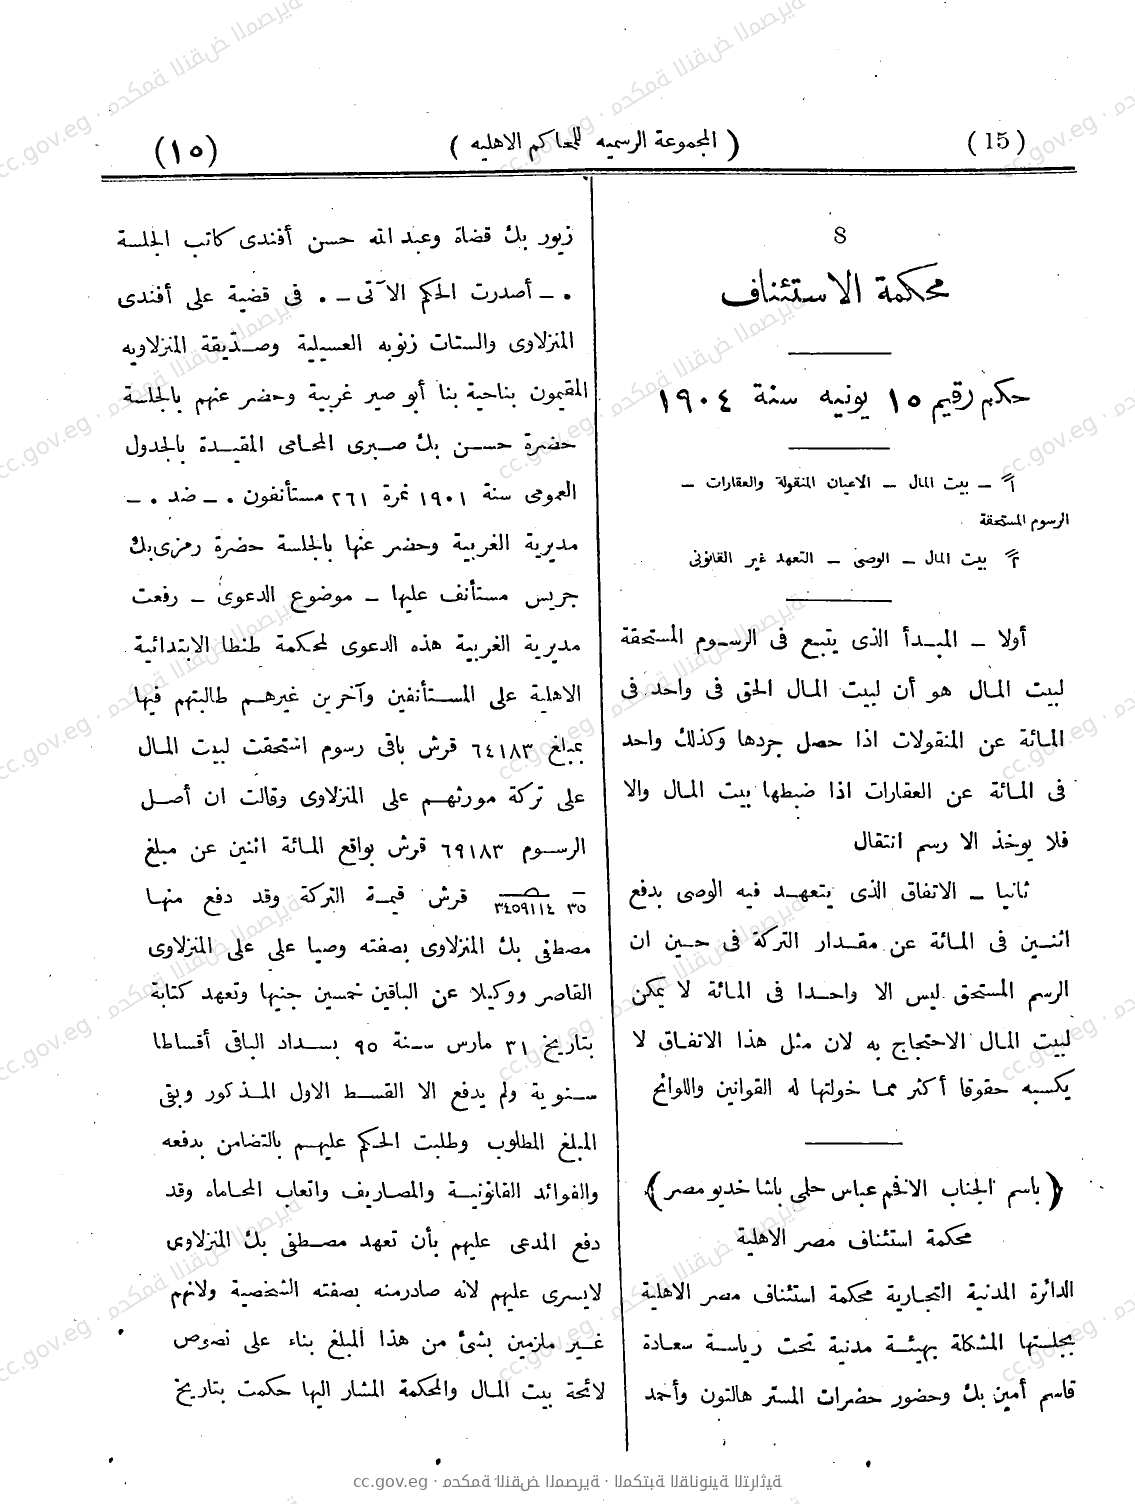 (١٥) ( المجموعة الرسميه للمحاكم الاهليه ) (15)
8
محكمة الاستئناف
حكم رقيم ١٥ يونيه سنة ١٩٠٤
١ً – بيت المال – الاعيان المنقولة والعقارات –
الرسوم المستحقة
٢ً بيت المال – الوصى – التعهد غير القانونى
أولا – المبدأ الذى يتبع فى الرسوم المستحقة
لبيت المال هو أن لبيت المال الحق فى واحد فى
المائة عن المنقولات اذا حصل جردها وكذلك واحد
فى المائة عن العقارات اذا ضبطها بيت المال والا
فلا يوخذ الا رسم انتقال
ثانيا – الاتفاق الذى يتعهد فيه الوصى بدفع
اثنين فى المائة عن مقدار التركة فى حين ان
الرسم المستحق ليس الا واحدا فى المائة لا يمكن
لبيت المال الاحتجاج به لان مثل هذا الاتفاق لا
يكسبه حقوقا أكثر مما خولتها له القوانين واللوائح
( باسم الجناب الافخم عباس حلمى باشا خديو مصر )
محكمة استئناف مصر الاهلية
الدائرة المدنية التجارية محكمة استئناف مصر الاهلية
بجلستها المشكلة بهيئة مدنية تحت رياسة سعادة
قاسم أمين بك وحضور حضرات المستر هالتون وأحمد
زيور بك قضاة وعبد الله حسن أفندى كاتب الجلسة
٠ – أصدرت الحكم الآتى – ٠ فى قضية على أفندى
المنزلاوى والستات زنوبه العسيلية وصديقة المنزلاويه
المقيمون بناحية بنا أبو صير غربية وحضر عنهم بالجلسة
حضرة حسن بك صبرى المحامى المقيدة بالجدول
العمومى سنة ١٩٠١ نمرة ٢٦١ مستأنفون ٠ – ضد ٠ –
مديرية الغربية وحضر عنها بالجلسة حضرة رمزى بك
جريس مستأنف عليها – موضوع الدعوى – رفعت
مديرية الغربية هذه الدعوى لمحكمة طنطا الابتدائية
الاهلية على المستأنفين وآخرين غيرهم طالبتهم فيها
بمبلغ ٦٤١٨٣ قرش باقى رسوم استحقت لبيت المال
على تركة مورثهم على المنزلاوى وقالت ان أصل
الرسوم ٦٩١٨٣ قرش بواقع المائة اثنين عن مبلغ
٣٥ ٣٤٥٩١١٤ قرش قيمة التركة وقد دفع منها
مصطفى بك المنزلاوى بصفته وصيا على على المنزلاوى
القاصر ووكيلا عن الباقين خمسين جنيها وتعهد كتابة
بتاريخ ٣١ مارس سنة ٩٥ بسداد الباقى أقساطا
سنوية ولم يدفع الا القسط الاول المذكور وبقى
المبلغ المطلوب وطلبت الحكم عليهم بالتضامن بدفعه
والفوائد القانونية والمصاريف واتعاب المحاماه وقد
دفع المدعى عليهم بأن تعهد مصطفى بك المنزلاوى
لايسرى عليهم لانه صادر منه بصفته الشخصية ولانهم
غير ملزمين بشئ من هذا المبلغ بناء على نصوص
لائحة بيت المال والمحكمة المشار اليها حكمت بتاريخ
cc.gov.eg · محكمة النقض المصرية · المكتبة القانونية التراثية